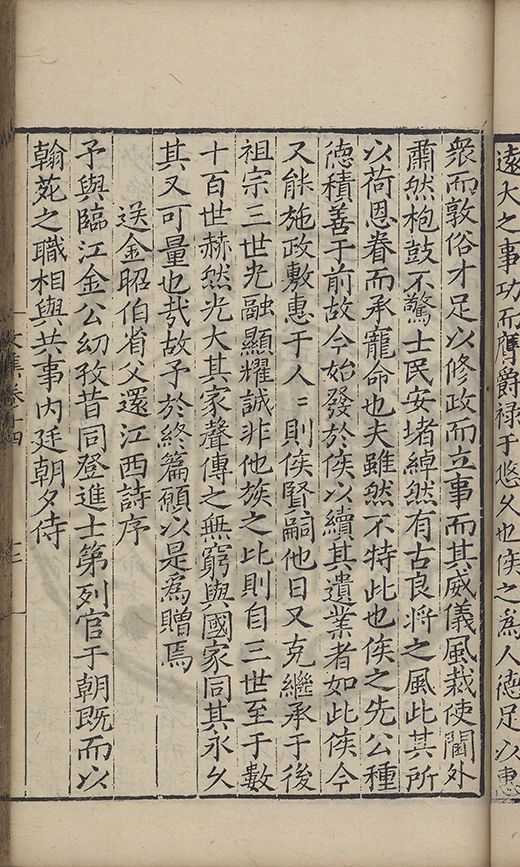 遠大之事功而膺爵禄于悠久也侯之為人德足以惠
衆而敦俗才足以修政而立事而其威儀風裁使閫外
肅然枹鼓不驚士民安堵綽然有古良將之風此其所
以荷恩眷而承寵命也夫雖然不特此也侯之先公種
德積善于前故今始發於侯以續其遺業者如此侯今
又能施政敷惠于人〻則侯賢嗣他日又克繼承于後
祖宗三世光融顯耀誠非他族之比則自三世至于數
十百世赫然光大其家聲傳之無窮與國家同其永久
其又可量也㢤故予於終篇願以是爲贈焉
送金昭伯省父還江西詩序
予與臨江金公幼孜昔同登進士第列官于朝既而以
翰苑之職相與共事内廷朝夕侍
文集卷十四